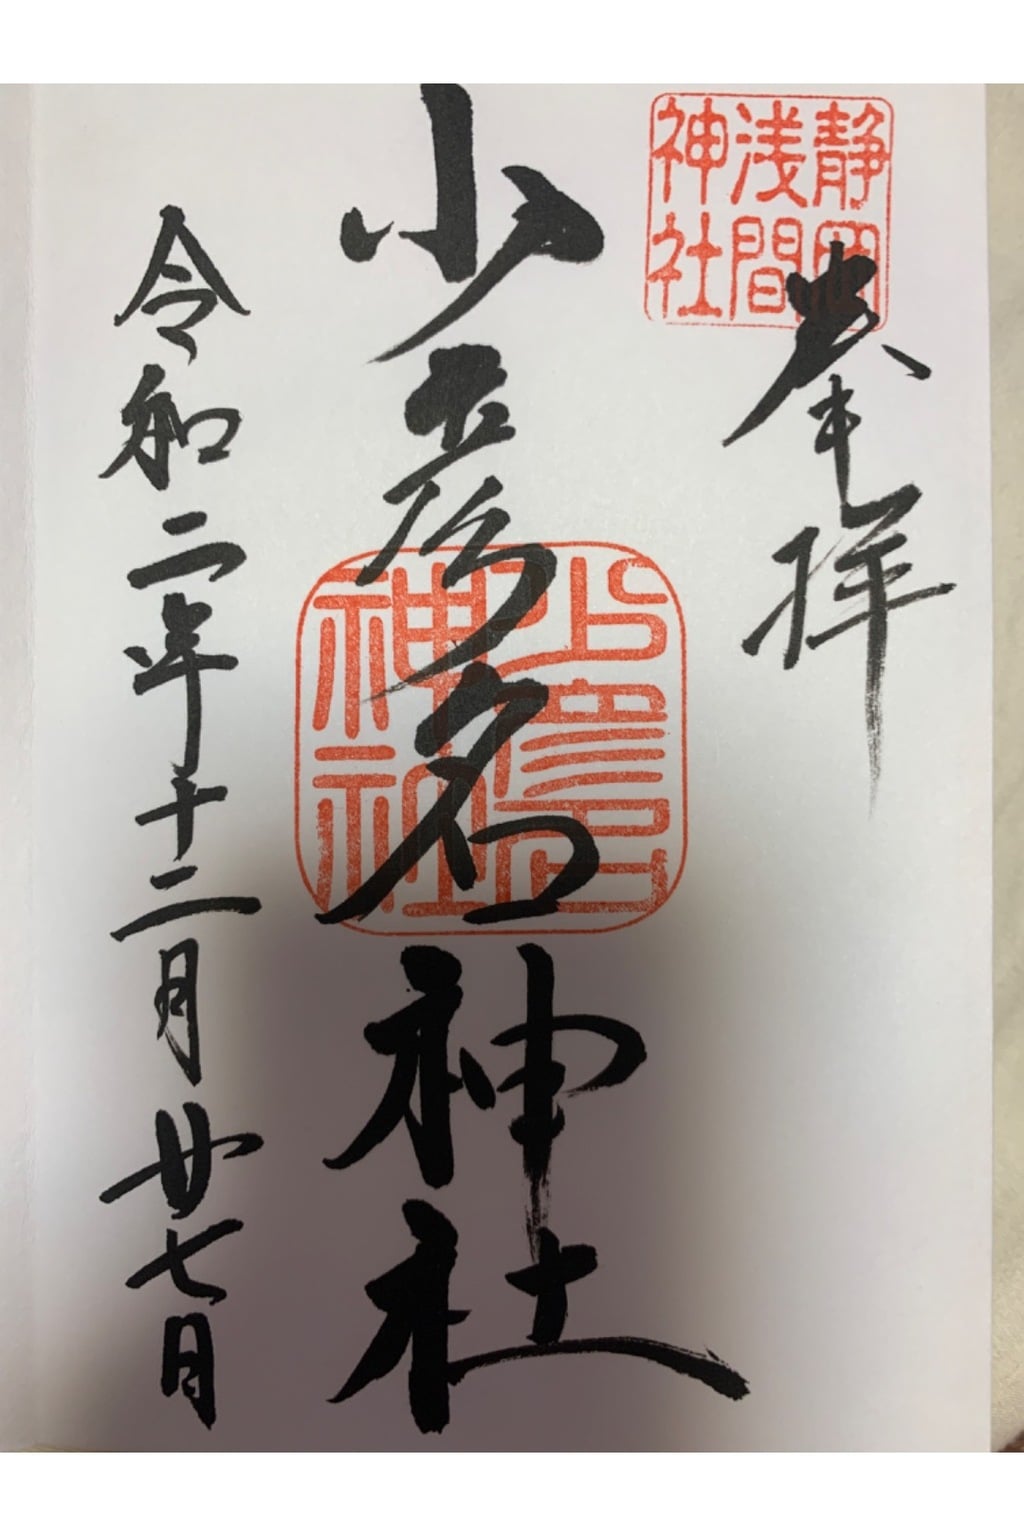 静岡
浅間
神社
奉拝
少彦名神社
少彦名
神社
令和二年十二月廿七日